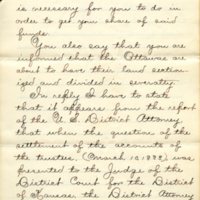 is necessary for you to do in
order to get your share of said
funds.
You also say that you are
informed that the Ottawas are
about to have their land section-
ized and divided in severalty.
In reply I have to state
that it appears from the report
of the U.S. District Attorney
that when the question of the
settlement of the accounts of
the trustees, (March 10, 1882), was
presented to the Judge of the
District Court for the District
of Kansas, the District Attorney